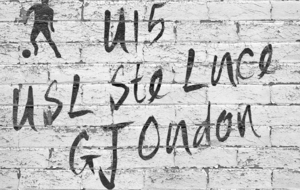 U15
USL Ste Luce
GJ Ondon